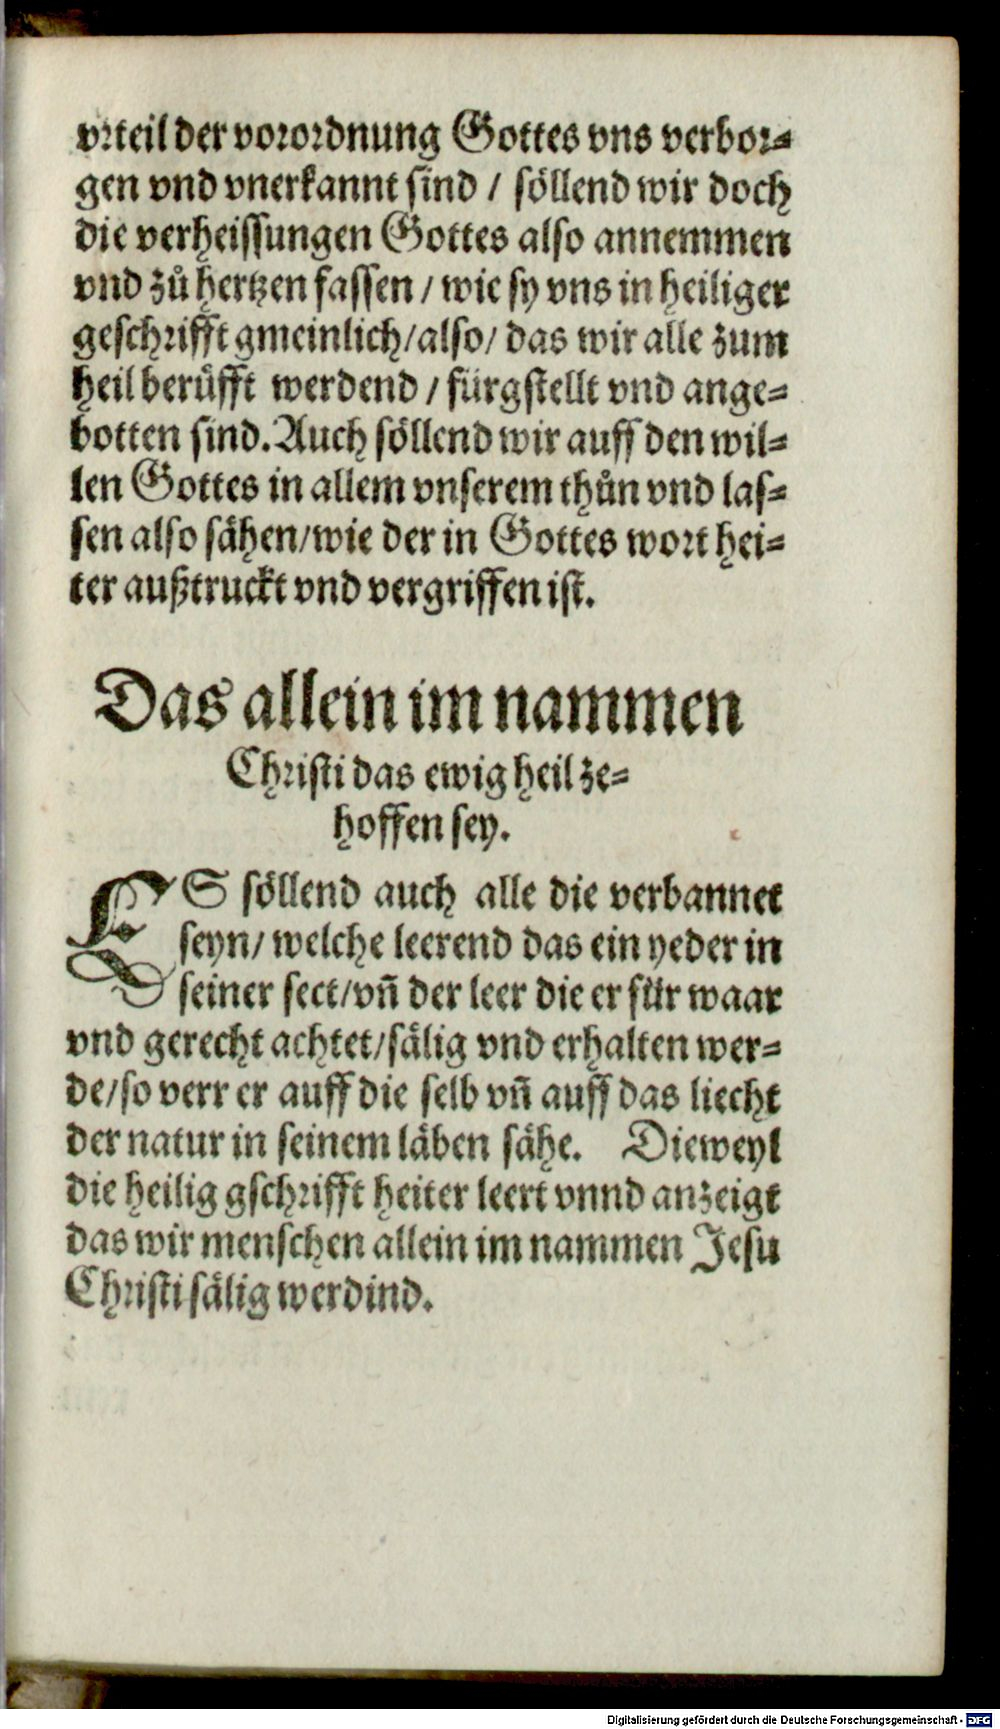 vrteil der vorordnung Gottes vns verbor-
gen vnd vnerkannt sind / söllend wir doch
die verheissungen Gottes also annemmen
vnd zů hertzen fassen / wie sy vns in heiliger
geschrifft gmeinlich/also/ das wir alle zum
heil berüfft werdend / fürgstellt vnd ange-
botten sind. Auch söllend wir auff den wil-
len Gottes in allem vnserem thůn vnd las-
sen also sähen/wie der in Gottes wort hei-
ter außtruckt vnd vergriffen ist.
Das allein im nammen
Christi das ewig heil ze-
hoffen sey.
ES söllend auch alle die verbannet
seyn/ welche leerend das ein yeder in
seiner sect/vñ der leer die er für waar
vnd gerecht achtet/sälig vnd erhalten wer-
de/so verr er auff die selb vñ auff das liecht
der natur in seinem läben sähe. Dieweyl
die heilig gschrifft heiter leert vnnd anzeigt
das wir menschen allein im nammen Jesu
Christi sälig werdind.
Digitalisierung gefördert durch die Deutsche Forschungsgemeinschaft - DFG